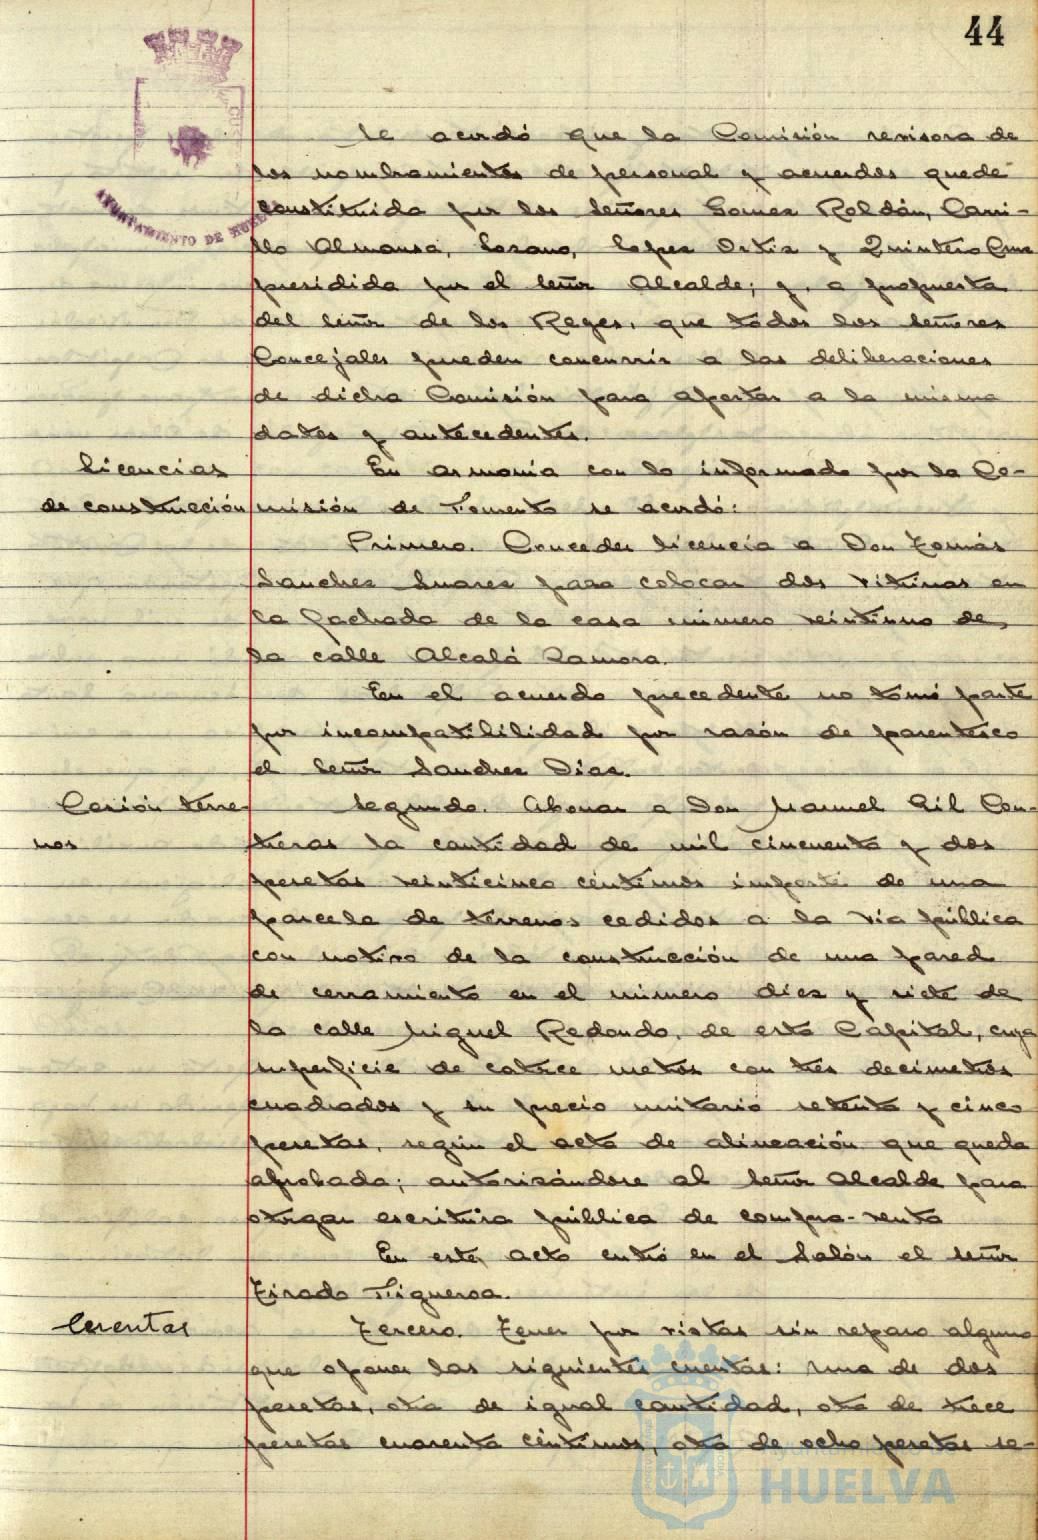 44
AYUNTAMIENTO DE HUELVA
Se acordó que la Comisión revisora de
los nombramientos de personal y acuerdos quede
constituida por los Señores Gomez Roldán, Carri-
llo Almansa, Lozano, Lopez Ortiz y Quintero
presidida por el Señor Alcalde; y, a propuesta
del Señor de los Reyes, que todos los Señores
Concejales pueden concurrir a las deliberaciones
de dicha Comisión para aportar a la misma
datos y antecedentes.
Licencias
de construcción
En armonia con lo informado por la Co-
misión de Fomento se acordó:
Primero. Conceder licencia a Don Tomás
Sanchez Suarez para colocar dos vitrinas en
la fachada de la casa número veintiuno de
la calle Alcalá Zamora.
En el acuerdo precedente no tomó parte
por incompatibilidad por razón de parentesco
el Señor Sanchez Diaz.
Cesión terre-
nos
Segundo. Abonar a Don Manuel Gil Con-
treras la cantidad de mil cincuenta y dos
pesetas veinticinco céntimos importe de una
parcela de terrenos cedidos a la via pública
con motivo de la construcción de una pared
de cerramiento en el número diez y siete de
la calle Miguel Redondo, de esta Capital, cuya
superficie de catorce metros con tres decimetros
cuadrados y su precio unitario setenta y cinco
pesetas, según el acta de alineación que queda
aprobada; autorizándose al Señor Alcalde para
otorgar escritura pública de compra-venta
En este acto entró en el Salón el Señor
Tirado Figueroa.
Cuentas
Tercero. Tener por vistas sin reparo alguno
que oponer las siguientes cuentas: una de dos
pesetas, otra de igual cantidad, otra de trece
pesetas cuarenta céntimos, otra de ocho pesetas se-
HUELVA